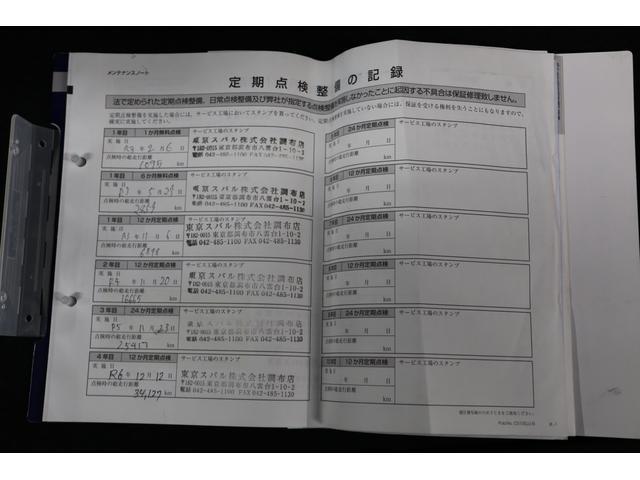 メンテナンスノート
定期点検整備の記録
法で定められた定期点検整備、日常点検整備及び弊社が指定する点検整備を実施しなかったことに起因する不具合は保証修理致しません。
定期点検整備を実施した場合には、サービス工場においてスタンプを貰ってください。
確実に実施してください。
1年目 1か月無料点検 サービス工場のスタンプ
実施日
年2月6日
点検時の総走行距離
km
東京スバル株式会社調布店
〒182-0015 東京都調布市八雲台1-10-2
電話 042-485-1100 FAX 042-485-1130
1年目 6か月無料点検 サービス工場のスタンプ
実施日
年5月29日
点検時の総走行距離
km
東京スバル株式会社調布店
〒182-0015 東京都調布市八雲台1-10-2
電話 042-485-1100 FAX 042-485-1130
1年目 12か月定期点検 サービス工場のスタンプ
実施日
R3年11月6日
点検時の総走行距離
km
東京スバル株式会社調布店
〒182-0015 東京都調布市八雲台1-10-2
電話 042-485-1100 FAX 042-485-1130
2年目 12か月定期点検 サービス工場のスタンプ
実施日
R4年11月20日
点検時の総走行距離
16665 km
東京スバル株式会社調布店
〒182-0015 東京都調布市八雲台1-10-2
電話 042-485-1100 FAX 042-485-1130
3年目 24か月定期点検 サービス工場のスタンプ
実施日
R5年11月23日
点検時の総走行距離
km
東京スバル株式会社調布店
〒182-0015 東京都調布市八雲台1-10-2
電話 042-485-1100 FAX 042-485-1130
4年目 12か月定期点検 サービス工場のスタンプ
実施日
R6年12月12日
点検時の総走行距離
34,127 km
東京スバル株式会社調布店
〒182-0015 東京都調布市八雲台1-10-2
電話 042-485-1100 FAX 042-485-1130
24か月定期点検 サービス工場のスタンプ
年 月 日
km
12か月定期点検 サービス工場のスタンプ
年 月 日
km
24か月定期点検 サービス工場のスタンプ
年 月 日
km
12か月定期点検 サービス工場のスタンプ
年 月 日
km
24か月定期点検 サービス工場のスタンプ
年 月 日
km
12か月定期点検 サービス工場のスタンプ
年 月 日
km